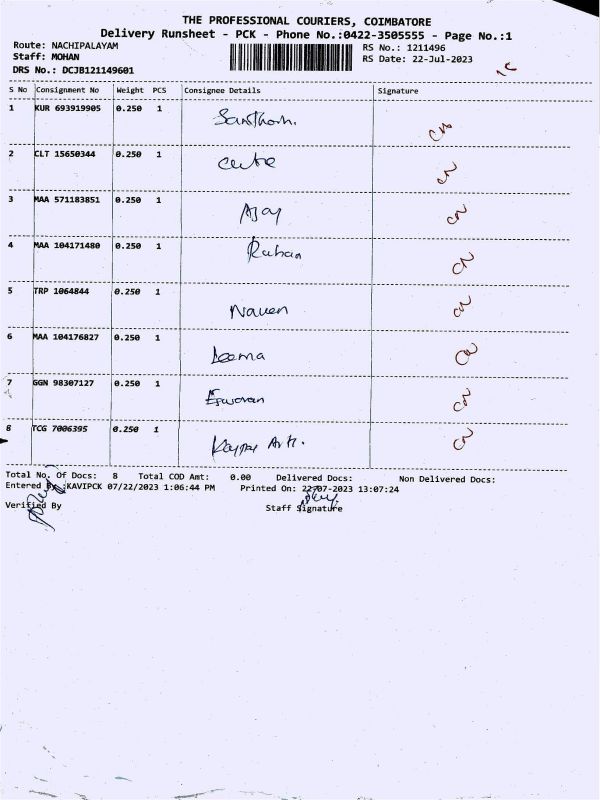 THE PROFESSIONAL COURIERS, COIMBATORE
Delivery Runsheet - PCK - Phone No.:0422-3505555 - Page No.:1
Route: NACHIPALAYAM RS No.: 1211496
Staff: MOHAN RS Date: 22-Jul-2023
DRS No.: DCJB121149601
S No Consignment No Weight PCS Consignee Details Signature
1 KUR 693919905 0.250 1
2 CLT 15650344 0.250 1
3 MAA 571183851 0.250 1 Ajay
4 MAA 104171480 0.250 1
5 TRP 1064844 0.250 1 Naveen
6 MAA 104176827 0.250 1
7 GGN 98307127 0.250 1 Eswaran
8 TCG 7006395 0.250 1
Total No. Of Docs: 8 Total COD Amt: 0.00 Delivered Docs: Non Delivered Docs:
Entered By :KAVIPCK 07/22/2023 1:06:44 PM Printed On: 22-07-2023 13:07:24
Verified By Staff Signature